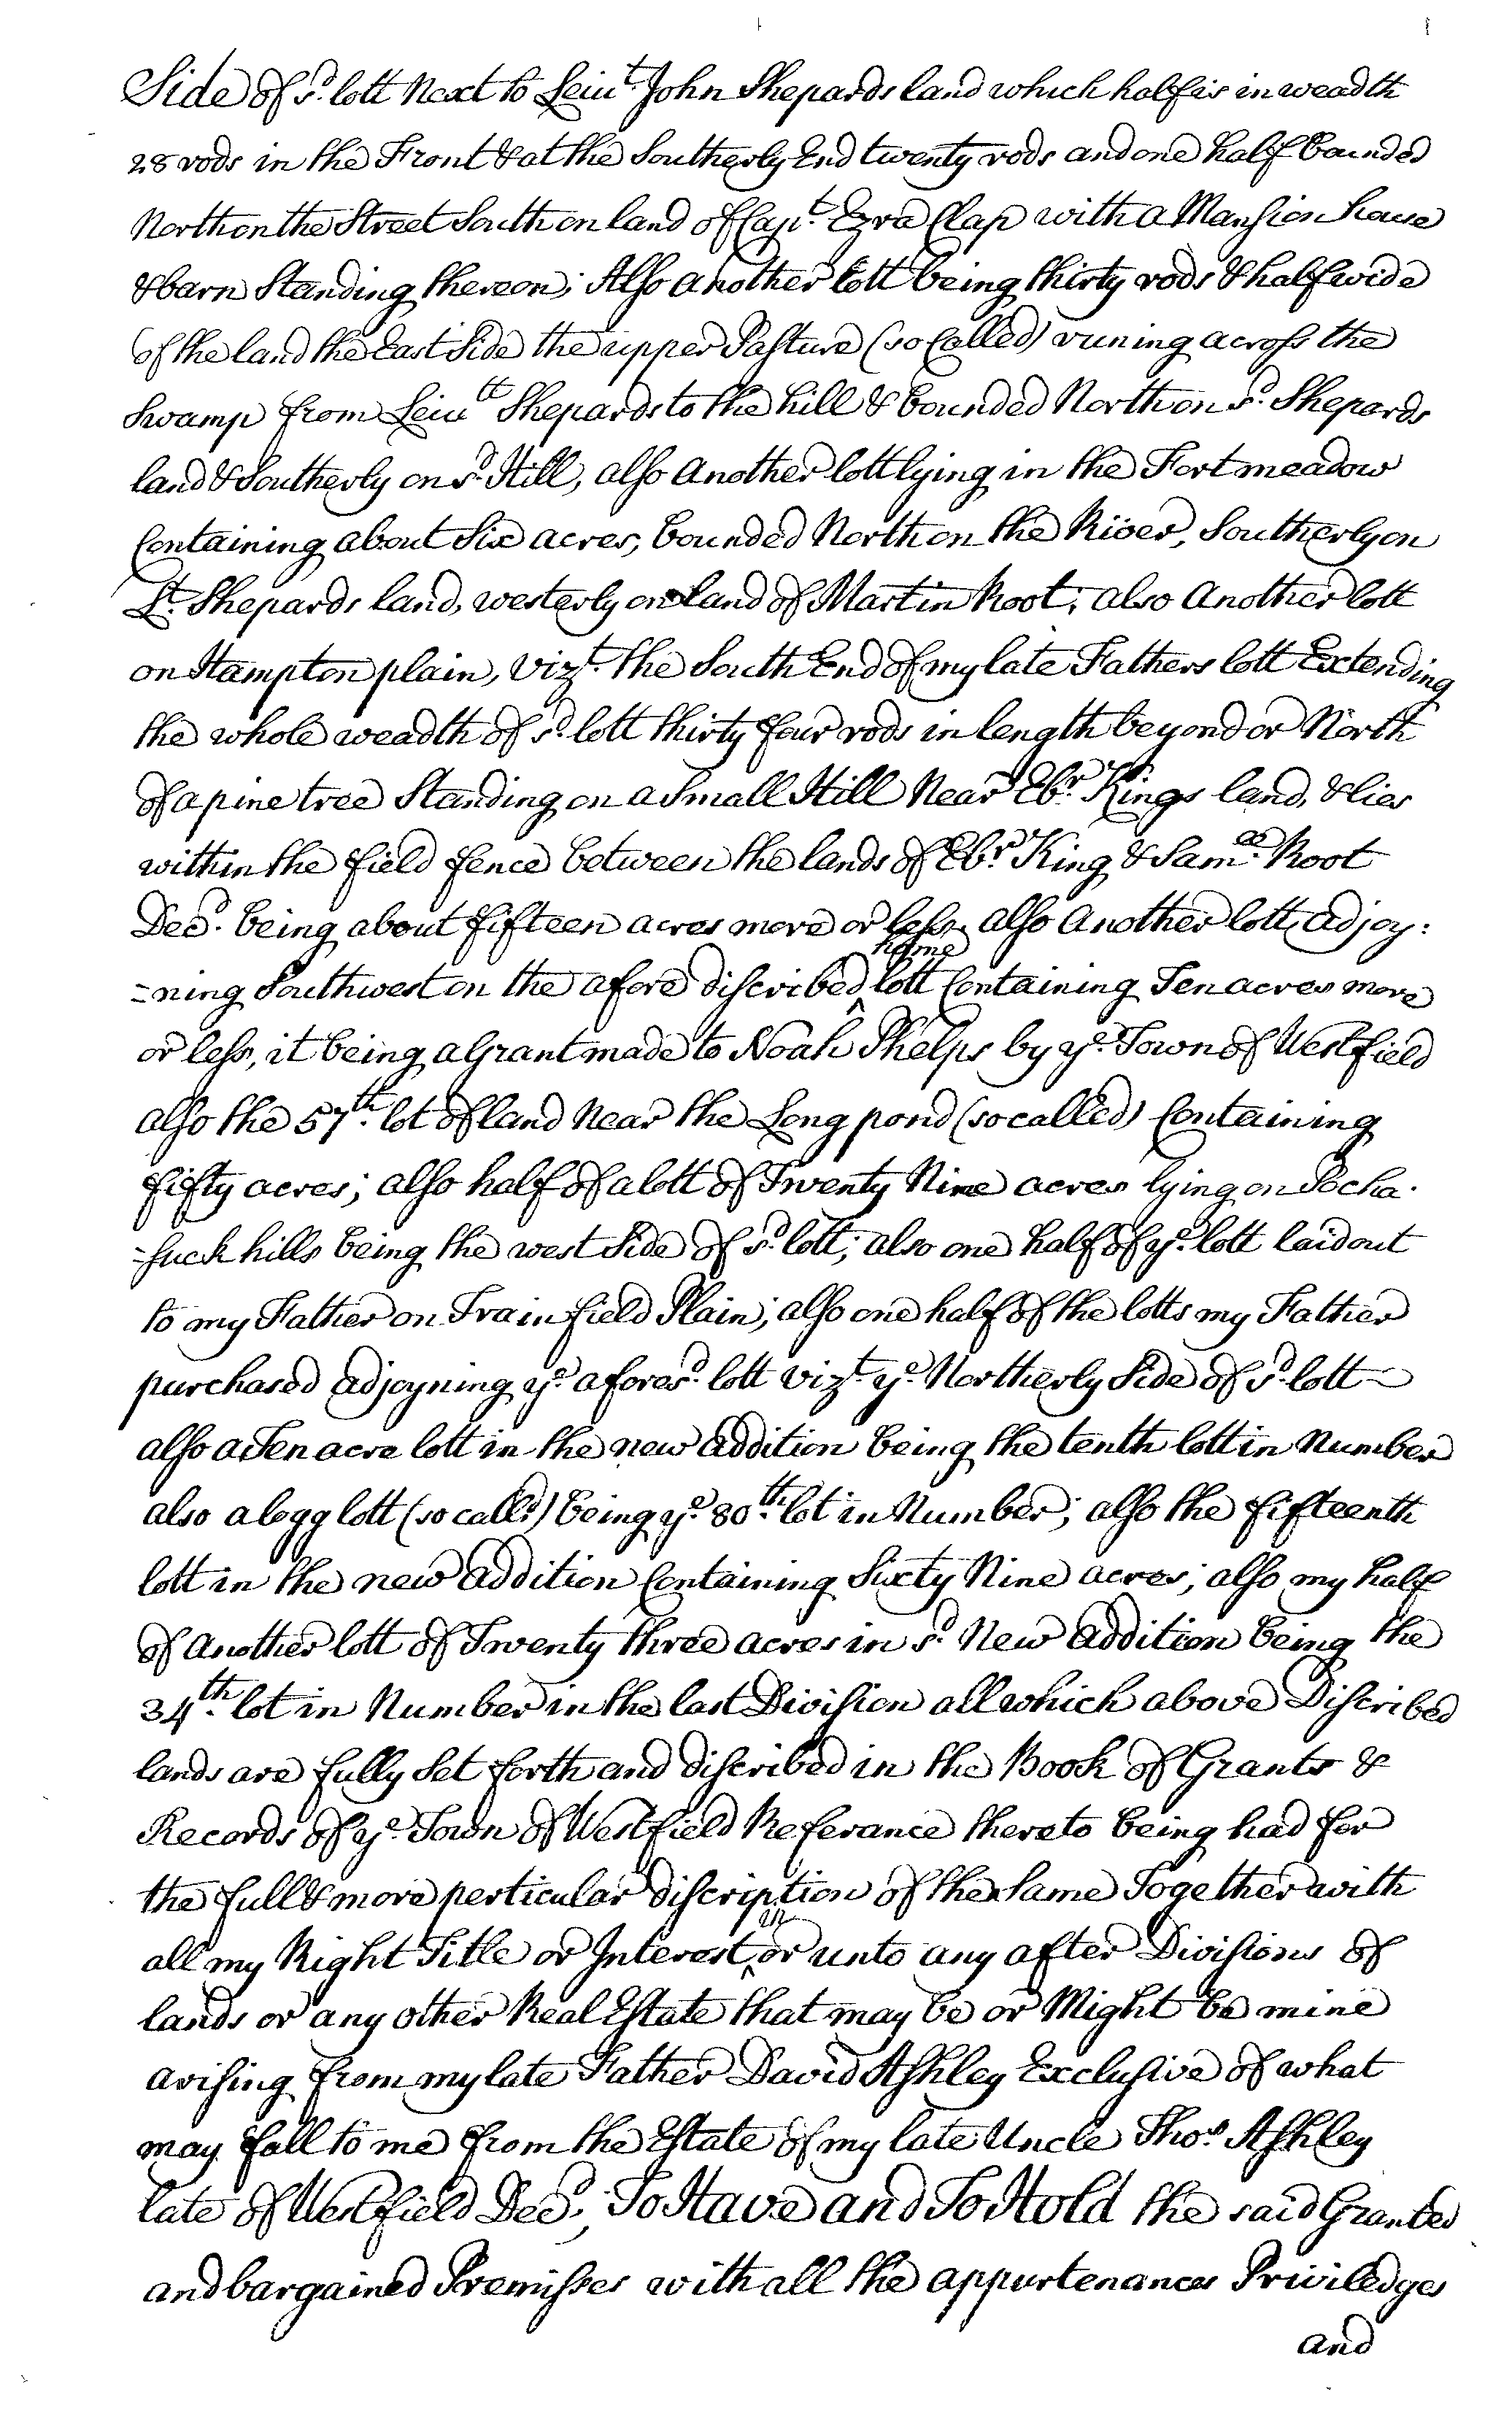 Side of sd. lott Next to Leiut. John Shepards land which half is in weadth
28 rods in the Front & at the Southerly End twenty rods and one half bounded
North on the Street South on land of Capt. Ezra Clap with a Mansion house
& barn Standing thereon; Also another lott being thirty rods & half wide
of the land the East Side the upper Pasture (so Called) runing across the
Swamp from Leiutt Shepards to the hill & bounded North on sd. Shepards
land & Southerly on sd. Hill, also Another lott lying in the Fort meadow
Containing about Six acres, bounded North on the River, Southerly on
Lt. Shepards land, westerly on land of Martin Root; also Another lott
on Hampton plain, vizt. the South End of my late Fathers lott Extending
the whole weadth of sd. lott thirty four rods in length beyond or North
of a pine tree Standing on a Small Hill Near Ebr. Kings land, & lies
within the field fence between the lands of Ebr. King & Samll. Root
Decd. being about fifteen acres more or less, also Another lott, adjoy:
=ning Southwest on the afore discribed ^home lott Containing Ten acres more
or less, it being a Grant made to Noah Phelps by ye. Town of Westfield
also the 57th. lot of land Near the Long pond (so called) Containing
fifty acres; also half of a lott of Twenty Nine acres lying on Pocha-
-suck hills being the west Side of sd. lott; also one half of ye. lott laid out
to my Father on Train field Plain; also one half of the lotts my Father
purchased adjoyning ye. aforesd. lott vizt. ye. Northerly Side of sd. lott
also a Ten acre lott in the new addition being the tenth lott in Number
also a logg lott (so calld.) being ye. 80th. lot in Number; also the fifteenth
lott in the new addition Containing Sixty Nine acres; also my half
of Another lott of Twenty three acres in sd. New addition being the
34th. lot in Number in the last Division all which above Discribed
lands are fully Set forth and discribed in the Book of Grants &
Records of ye. Town of Westfield Referance thereto being had for
the full & more perticular discription of the Same Together with
all my Right Title or Interest ^in or unto any after Divisions of
lands or any other Real Estate that may be or Might be mine
arising from my late Father David Ashley Exclusive of what
may fall to me from the Estate of my late Uncle Thos. Ashley
late of Westfield Decd.; To Have and To Hold the said Granted
and bargained Premisses with all the appurtenances Priviledges
and